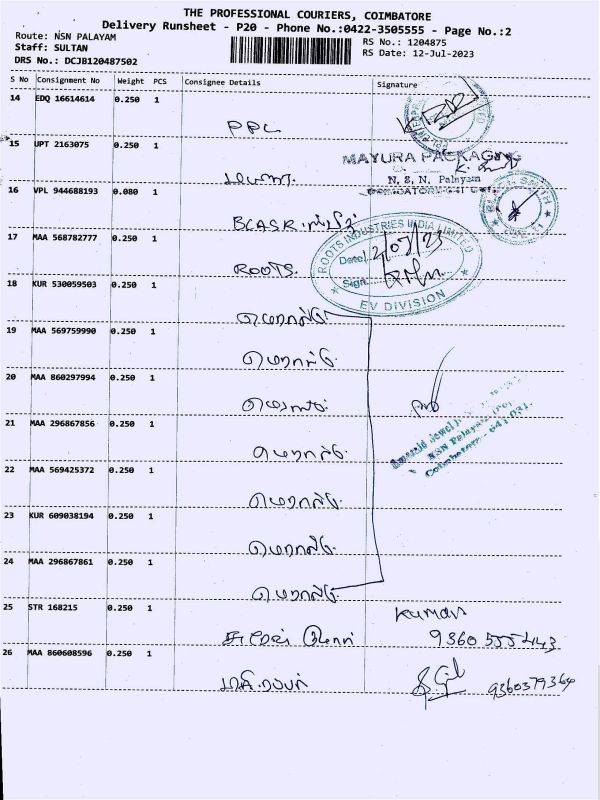 THE PROFESSIONAL COURIERS, COIMBATORE
Delivery Runsheet - P20 - Phone No.:0422-3505555 - Page No.:2
Route: NSN PALAYAM
Staff: SULTAN
DRS No.: DCJB120487502
RS No.: 1204875
RS Date: 12-Jul-2023
S No Consignment No Weight PCS Consignee Details Signature
14 EDQ 16614614 0.250 1
PPC
15 UPT 2163075 0.250 1
MAYURA PACKAGING
N. S. N. Palayam
16 VPL 944688193 0.080 1
17 MAA 568782777 0.250 1
ROOTS INDUSTRIES INDIA LIMITED
Date
Sign
EV DIVISION
ROOTS.
18 KUR 530059503 0.250 1
எமரால்டு
19 MAA 569759990 0.250 1
எமரால்டு
20 MAA 860297994 0.250 1
எமரால்டு
21 MAA 296867856 0.250 1
எமரால்டு
22 MAA 569425372 0.250 1
எமரால்டு
23 KUR 609038194 0.250 1
எமரால்டு
24 MAA 296867861 0.250 1
எமரால்டு
25 STR 168215 0.250 1
Kumar
26 MAA 860608596 0.250 1
9360379364